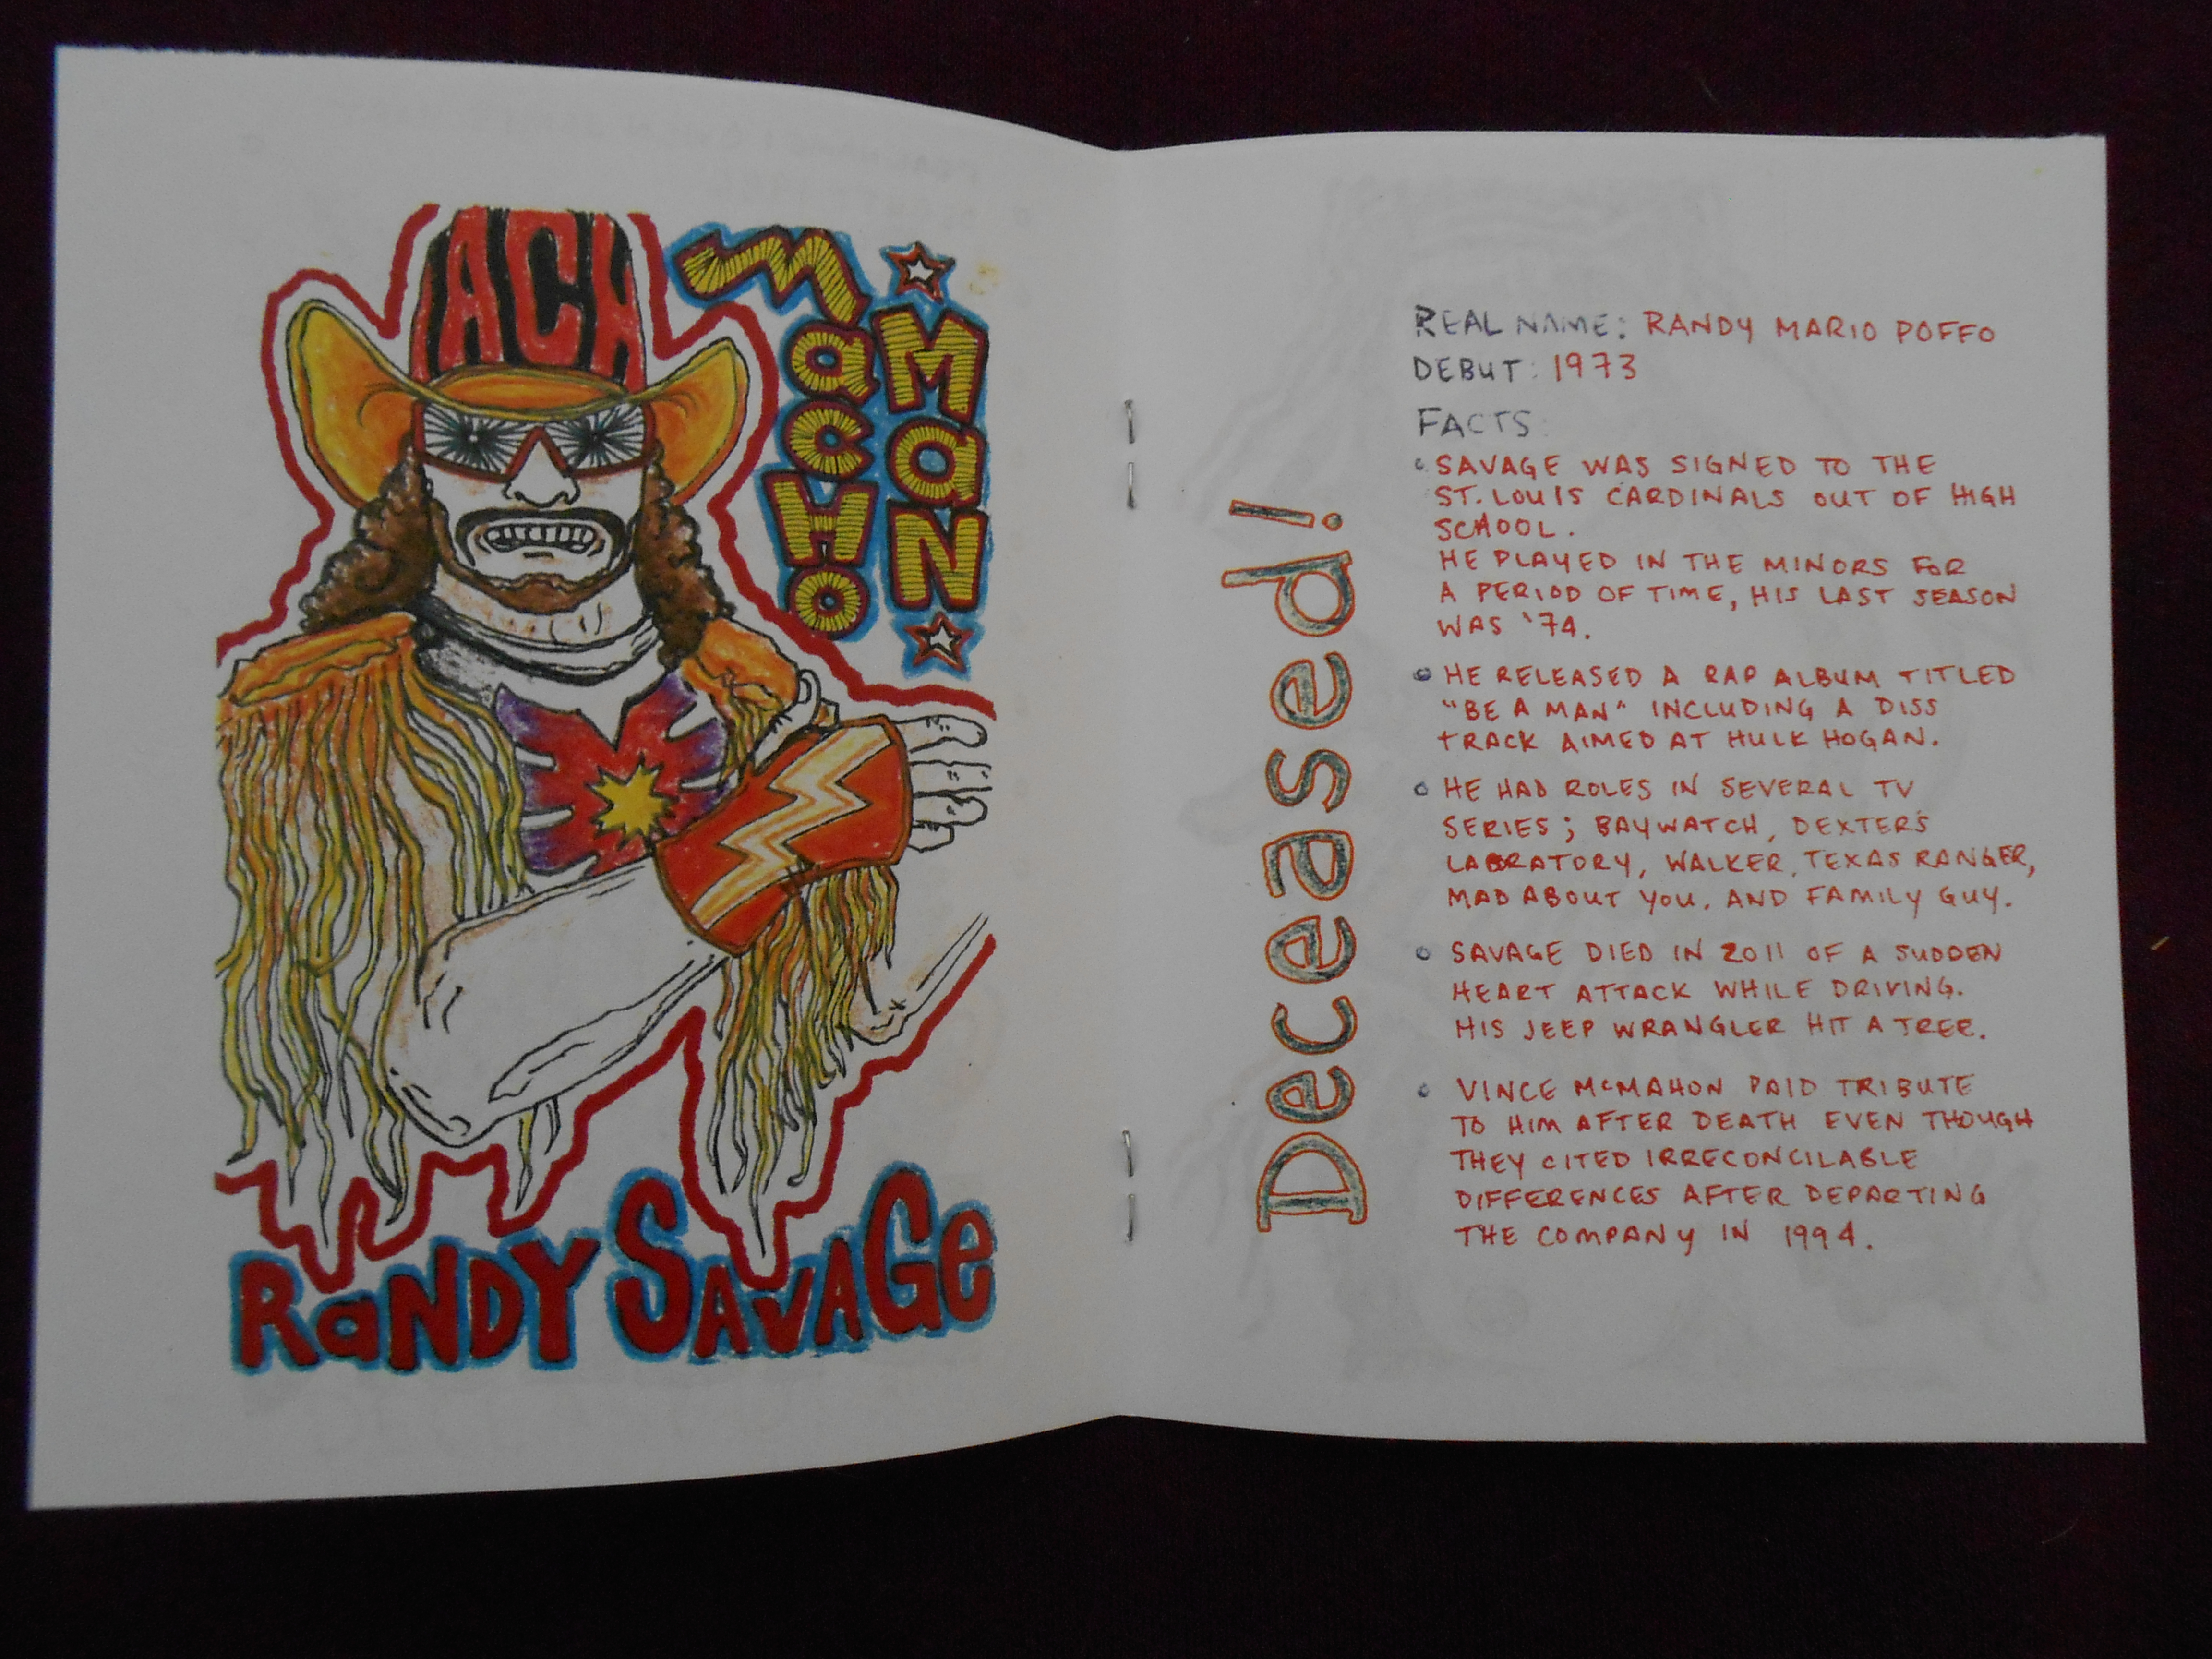 ACH
MacHo
MaN
RaNDY SavaGe
Deceased!
REAL NAME: RANDY MARIO POFFO
DEBUT: 1973
FACTS:
SAVAGE WAS SIGNED TO THE
ST. LOUIS CARDINALS OUT OF HIGH
SCHOOL.
HE PLAYED IN THE MINORS FOR
A PERIOD OF TIME, HIS LAST SEASON
WAS '74.
HE RELEASED A RAP ALBUM TITLED
"BE A MAN" INCLUDING A DISS
TRACK AIMED AT HULK HOGAN.
HE HAD ROLES IN SEVERAL TV
SERIES; BAYWATCH, DEXTER'S
LABRATORY, WALKER, TEXAS RANGER,
MAD ABOUT YOU, AND FAMILY GUY.
SAVAGE DIED IN 2011 OF A SUDDEN
HEART ATTACK WHILE DRIVING.
HIS JEEP WRANGLER HIT A TREE.
VINCE McMAHON PAID TRIBUTE
TO HIM AFTER DEATH EVEN THOUGH
THEY CITED IRRECONCILABLE
DIFFERENCES AFTER DEPARTING
THE COMPANY IN 1994.